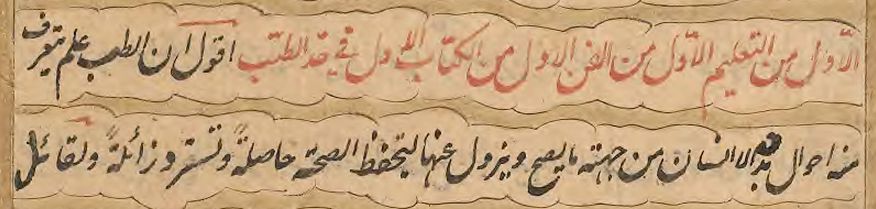 الاول من التعليم الاول من الفن الاول من الكتاب الاول في حد الطب اقول ان الطب علم يتعرف
منه احوال بدن الانسان من جهة ما يصح ويزول عنها لتحفظ الصحة حاصلة وتسترد زائلة ولقائل